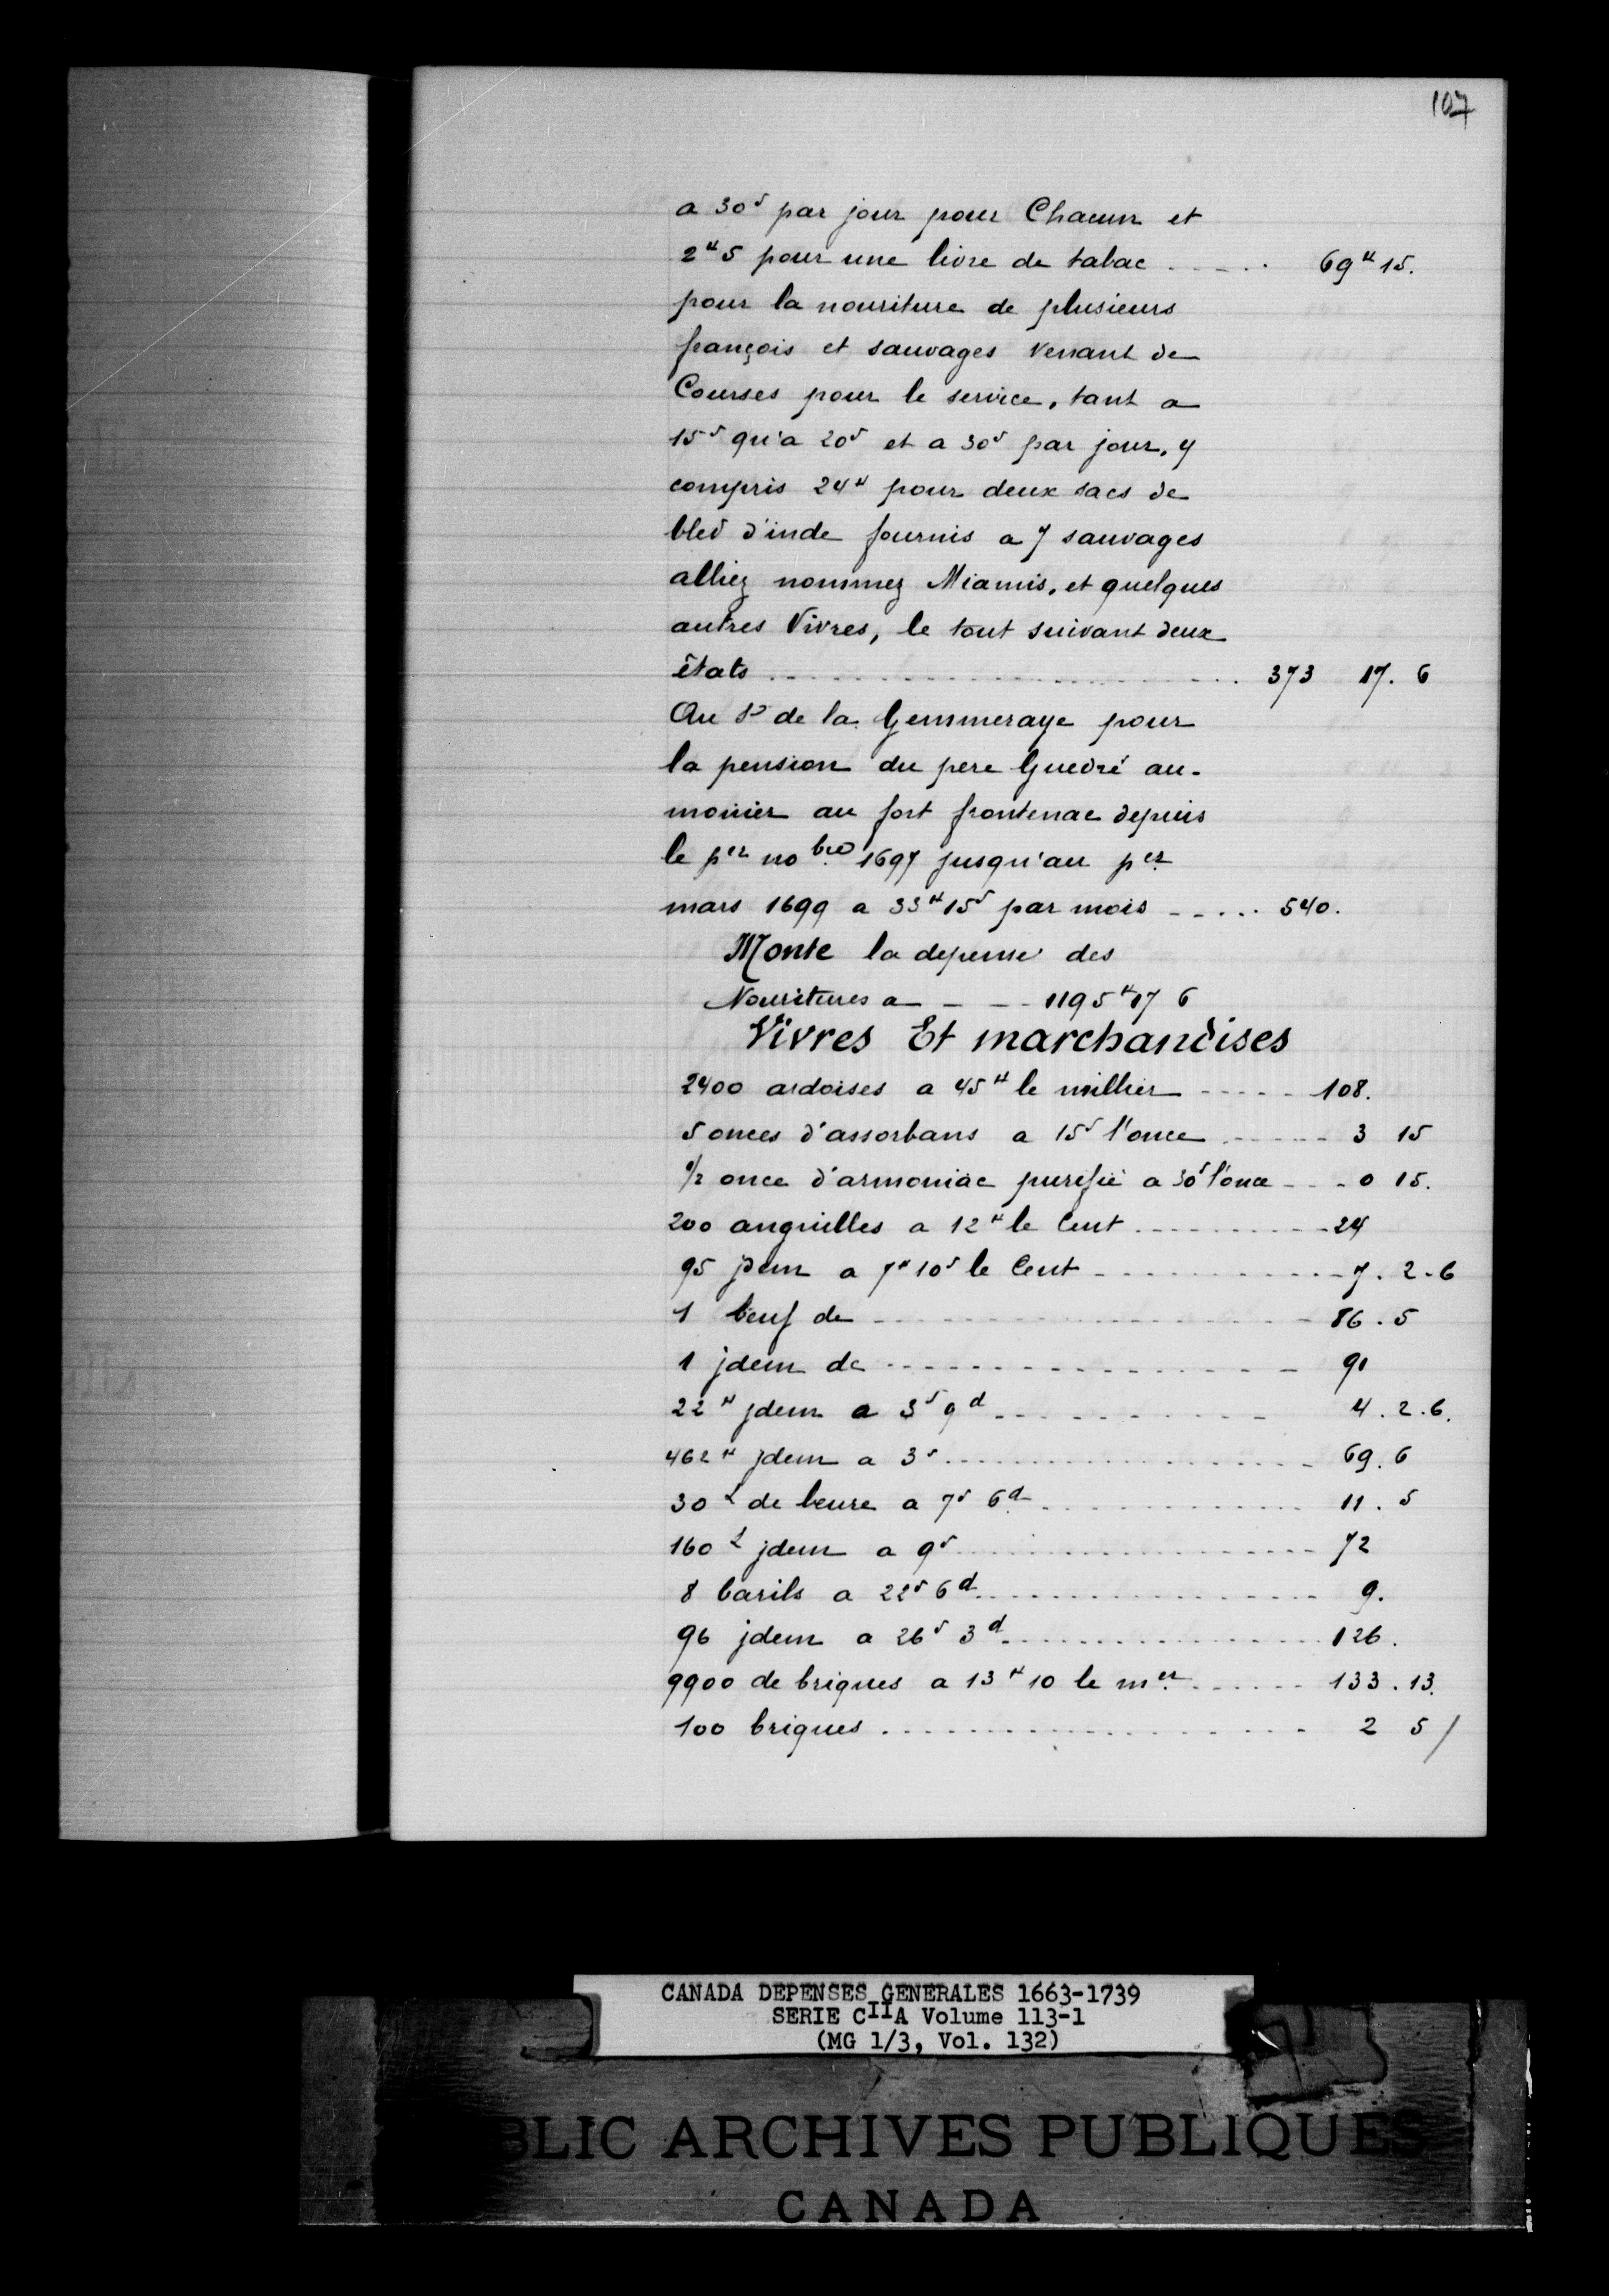 107
a 30ˢ par jour pour Chacun et
2ᴴ 5 pour une livre de tabac ..... 69ᴴ 15.
pour la nouriture de plusieurs
françois et sauvages Venant de
Courses pour le service, tant a
15ˢ qu'a 20ˢ et a 30ˢ par jour, y
compris 24ᴴ pour deux sacs de
bled d'inde fournis a 7 sauvages
alliez nommez Miamis, et quelques
autres Vivres, le tout suivant deux
états ..... 373 17. 6
Au Sʳ de la Gemmeraye pour
la pension du pere Guedré au-
monier au fort frontenac depuis
le pᵉʳ noᵇʳᵉ 1697 jusqu'au pᵉʳ
mars 1699 a 33ᴴ 15ˢ par mois ..... 540.
Monte la depense des
Nouritures a - - - 1195ᴴ 17 6
Vivres Et marchandises
2400 ardoises a 45ᴴ le millier ..... 108.
5 onces d'assorbans a 15ˢ l'once ..... 3 15
1/2 once d'armoniac purifié a 30ˢ l'once - - - 0 15.
200 anguilles a 12ᴴ le Cent ..... 24
95 jdem a 7ᴴ 10ˢ le Cent ..... 7. 2. 6
1 beuf de ..... 86. 5
1 jdem de ..... 90
22ᴴ jdem a 3ˢ 9ᵈ ..... 4. 2. 6.
462ᴴ jdem a 3ˢ ..... 69. 6
30ᴸ de beure a 7ˢ 6ᵈ ..... 11. 5
160ᴸ jdem a 9ˢ ..... 72
8 barils a 22ˢ 6ᵈ ..... 9.
96 jdem a 26ˢ 3ᵈ ..... 126.
9900 de briques a 13ᴴ 10 le mᵉʳ ..... 133. 13.
100 briques ..... 2 5 /
CANADA DEPENSES GENERALES 1663-1739
SERIE CIIA Volume 113-1
(MG 1/3, Vol. 132)
BLIC ARCHIVES PUBLIQUES
CANADA